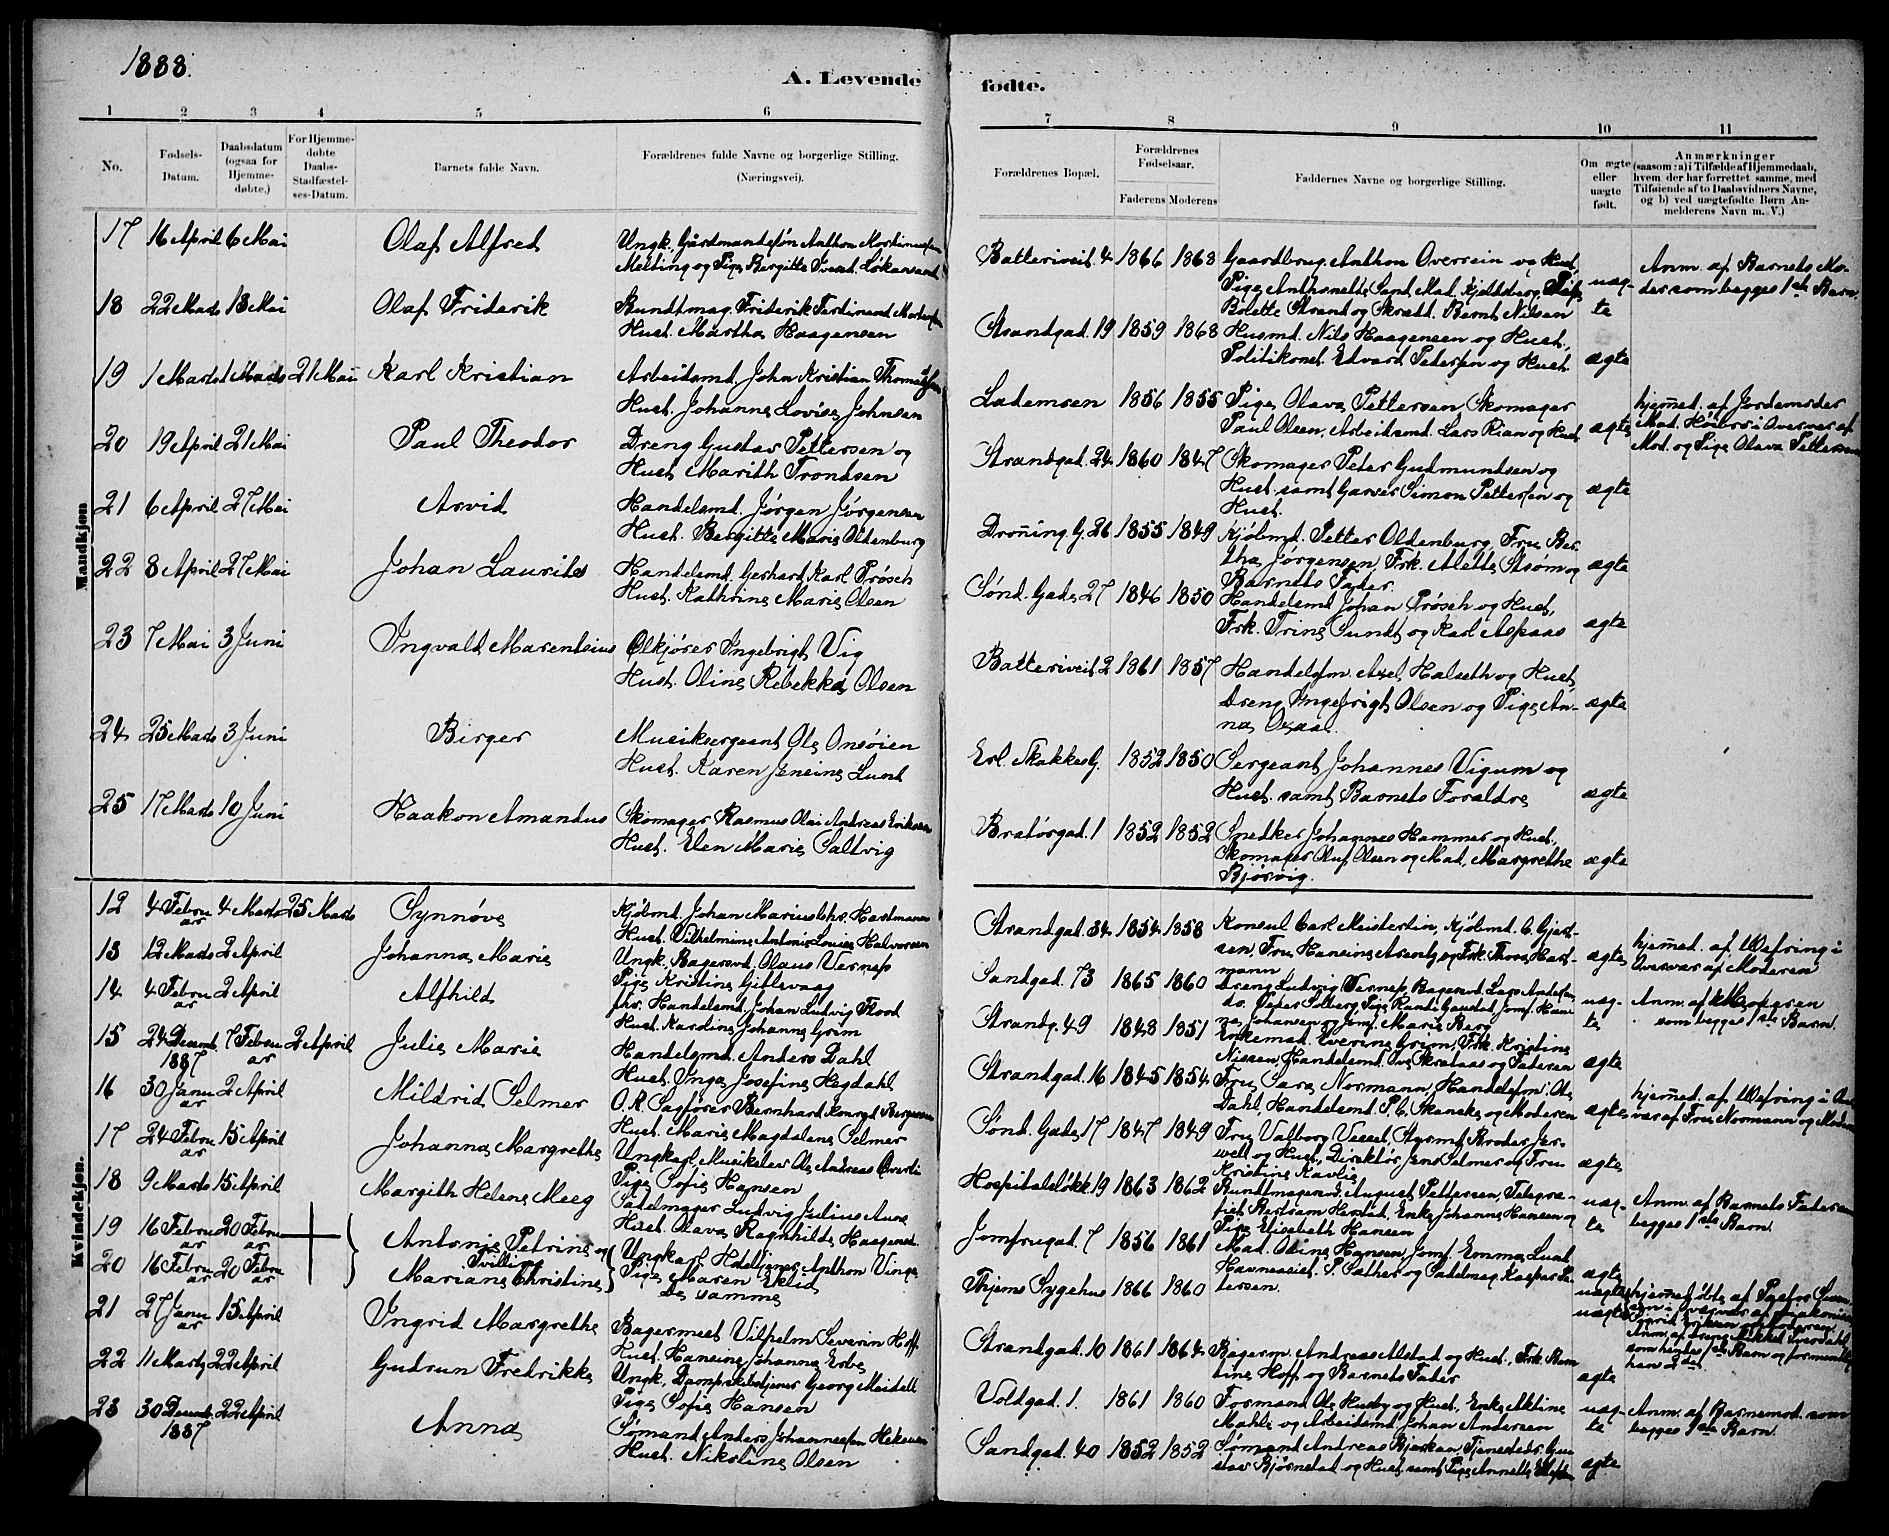 1888.
A. Levende
1 2 3 4 5 6
No.
Fødsels-Datum.
Daabsdatum (ogsaa for Hjemme-døbte.)
For Hjemme-døbte Daabs-Stadfæstel-ses-Datum.
Barnets fulde Navn.
Forældrenes fulde Navne og borgerlige Stilling.
(Næringsvei).
Mandkjøn
17 16 April 6 Mai Olaf Alfred Ungk. Gårdmandsøn Anthon
og Pige Bergitte
18 22 Marts 13 Mai Olaf Friderik Bundtmag. Friderik Ferdinand
Hust. Martha Haagensen
19 1 Marts 1 Marts 21 Mai Karl Kristian Arbeidsmd. John Kristian
Hust. Johanne Lovise Johnsen
20 19 April 21 Mai Paul Theodor Dreng Gustav Pettersen og
Hust. Marith Trondsen
21 6 April 27 Mai Arvid Handelsmd. Jørgen Jørgensen
Hust. Bergitte Marie Oldenburg
22 8 April 27 Mai Johan Laurits Handelsmd. Gerhard Karl Prøsch
Hust. Kathrine Marie Olsen
23 7 Mai 3 Juni Ingvald Marentsius Ølkjører Ingebrigt Vig
Hust. Oline Rebekka Olsen
24 25 Marts 3 Juni Birger Musiksergeant Ole Onsøien
Hust. Karen Jensine Lund
25 17 Marts 10 Juni Haakon Amandus Skomager Rasmus Olai Andreas Eriksen
Hust. Elen Marie Saltvig
Kvindekjøn.
12 4 Februar 4 Marts 25 Marts Synnøve Kjøbmd. Johan Marius Hartmann
Hust. Vilhelmine Antonie Louise Halvorsen
13 12 Marts 2 April Johanna Marie Ungk. Bagersvd. Olaus Verness
Pige Kristine Gitlevaag
14 4 Februar 2 April Alfhild fhv. Handelsmd. Johan Ludvig Floor
Hust. Kardine Johanne Grim
15 24 Decemb. 1887 7 Februar 2 April Julie Marie Handelsmd. Anders Dahl
Hust. Inga Josefine Hegdahl
16 30 Januar 2 April Mildrid Selmer O.R. Sagfører Bernhard
Hust. Marie Magdalene Selmer
17 24 Februar 15 April Johanna Margrethe Ungkarl Musikelev Ole Andreas
Pige Sofie Hansen
18 9 Marts 15 April Margith Helene Meeg Sadelmager Ludvig Julius Aune
Hust. Olava Ragnhilde
19 16 Februar 20 Februar Antonie Petrine og
Tvillinger
Ungkarl Anthon Vinge
20 16 Februar 20 Februar Mariane Christine Pige Maren Eklid
De samme
21 27 Januar 15 April Ingrid Margrethe Bagermest. Vilhelm Severin Hoff
Hust. Hansine Johanna Erbe
22 11 Marts 22 April Gudrun Fredrikke Ungk. Georg Meidell
Pige Sofie Hansen
23 30 Decemb. 1887 22 April Anna Sømand Anders Johannessen
Hust. Nikoline Olsen
fødte.
7 8 9 10 11
Forældrenes Bopæl.
Forældrenes Fødselsaar.
Faderens Moderens
Faddernes Navne og borgerlige Stilling.
Om ægte eller uægte født.
Anmærkninger
(saasom: a) i Tilfælde af Hjemmedaab,
hvem der har forrettet samme, med
Tilføiende af to Daabsvidners Navne,
og b) ved uægtefødte Børn An-
melderens Navn m. V.)
Batteriveit. 4 1866 1868 Gaardbrug. Anthon Overrein og Hust,
Bolette Strand og Skrædd. Bernt Nilsen
uæg-
te
Anm. af Barnets Mo-
der som begges 1ste Barn.
Strandgad. 19 1859 1868 Husmd. Nils Haagensen og Hust,
Politikonst. Edvard Petersen og Hust. ægte
Lademoen 1856 1855 Pige Olava Pettersen Skomager
Paul Olsen, Arbeidsmd. Lars Rian og Hust. ægte
hjemmed. af Jordemoder
Mad. i Overvær af
Mod. og Pige Olava Pettersen
Strandgad. 24 1860 1847 Skomager Peter Gudmundsen og
Hust. samt Garver Simon Pettersen og
Hust. ægte
Droning. G. 26 1855 1849 Kjøbmd. Petter Oldenburg, Fru Ber-
tha Jørgensen, Frk. Alette Strøm og
Barnets Fader. ægte
Sønd. Gade 27 1846 1850 Handelsmd. Johan Prøsch og Hust,
Frk. Trine Sundt og Karl Aspaas ægte
Batteriveit. 2 1861 1857 Handelsfm. Axel Halseth og Hust,
Dreng Ingebrigt Olsen og Pige An-
na Oxaas. ægte
Erl. Skakkes G. 1852 1850 Sergeant Johannes Vigum og
Hust. samt Barnets Forældre ægte
Bratørgad. 1 1852 1852 Snedker Johannes Hammer og Hust,
Skomager Oluf Olsen og Mad. Margrethe
Bjørvig. ægte
Strandgad. 34 1854 1858 Konsul Carl Kjøbmd. C. Gjert-
sen, Fru Hansine og Frk. Thora Hart-
mann ægte
hjemmed. af Wefring i
Overvær af Moderen
Sandgad. 73 1865 1860 Dreng Ludvig Verness, Bagersvd. Lars
Peter Solberg, Pige Randi Jomf. Han-
na Johansen og Jomf. Marie Berg
uæg-
te
Anm. af Moderen
som begges 1ste Barn.
Strandg. 49 1848 1851 Enkemad. Everine Grim, Frk. Kristine
Nissen, Handelsmd. og Faderen ægte
Strandgad. 16 1845 1854 Fru Sara Normann, Handelsfm. Ole
Dahl, Handelsmd. P.C. Skancke og Moderen ægte
hjemmed. af Wefring i Over-
vær af Fru Normann og Moderen
Sønd. Gade 17 1847 1849 Fru Valborg Styrmd. Broder Jer-
well og Hust, Direktør Jens Selmer og Fru
Kristine Kavlie ægte
Hospitalsløkk. 19 1863 1862 Bundtmagersvd. August Pettersen, Telegra-
fist Bertram Enke Johanne Hansen og
Pige Elisabeth Hansen
uæg-
te
Anm. af Barnets Fader som
begges 1ste Barn.
Jomfrugad. 7 1856 1861 Mad. Oline Hansen, Jomf. Emma Lund,
Havneassist. P. Sæther og Sadelmag. Kasper Pe-
tersen. ægte
Thjems Sygehus 1866 1860 uægte
uægte
hjemmedøbte af
som hendes 1ste Barn og formentlig
han 2det.
Strandgad. 10 1861 1864 Bagerm. Andreas Alstad og Hust, Frk.
Hoff og Barnets Fader ægte
Voldgad. 1. 1861 1860 Formand Ole Husby og Hust, Enke Aktine
Mahle og Arbeidsmd. Johan Andersen
uæg-
te
Anm. af Barnemod. som
begges 1ste Barn.
Sandgad. 40 1852 1852 Sømand Andreas Bjerkan, Gu-
stav Bjørnstad og Hust. samt Pige Annette ægte